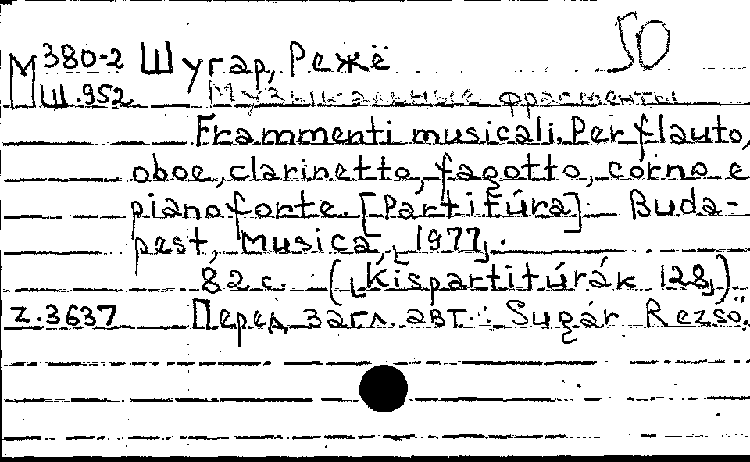 50
М380-2 Шугар, Режё
Ш.952 Музыкальные фрагменты
Frammenti musicali. Per flauto,
oboe, clarinetto, fagotto, corno e
pianoforte. [Partitúra]. Buda-
pest, Musica, [1977].
82 с. ([Kispartitúrák 128])
Z.3637 Перед загл. авт.: Sugár Rezső.